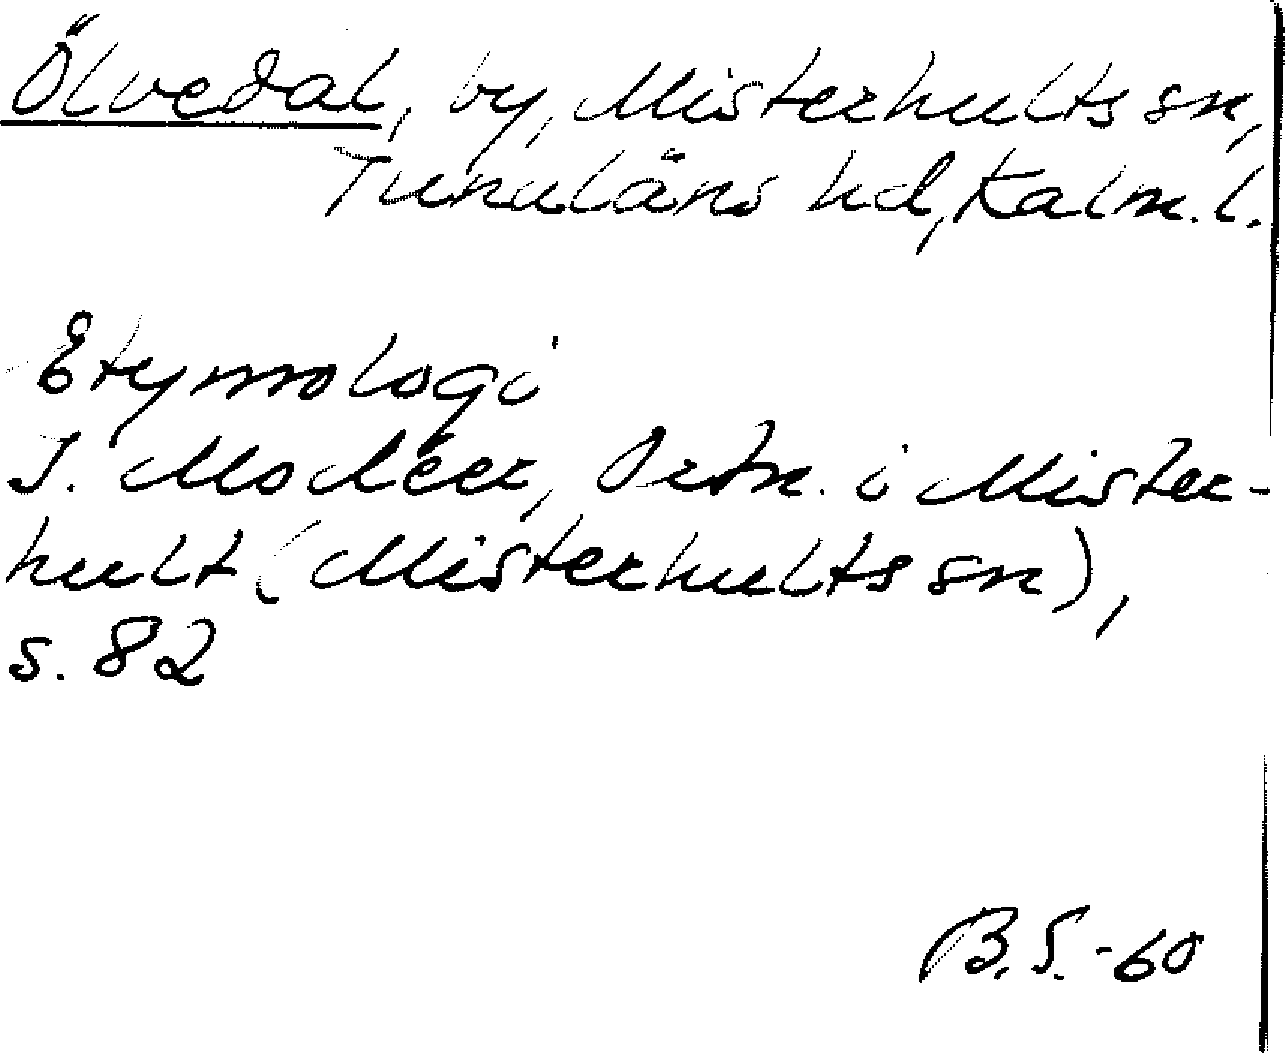 Ölvedal, by, Misterhults sn,
Tunaläns hd, Kalm. l.
Etymologi
I. Modéer, Ortn. i Mister-
hult (Misterhults sn),
s. 82
B.S.-60